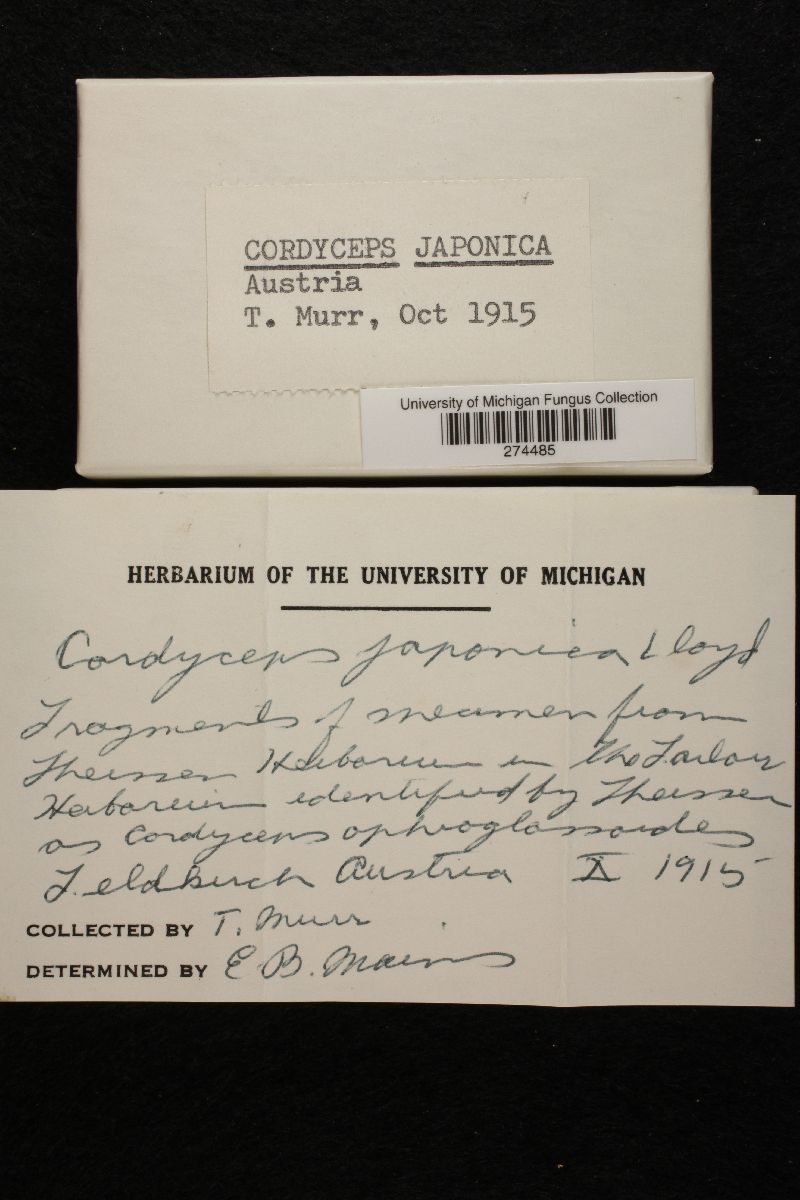 CORDYCEPS JAPONICA
Austria
T. Murr, Oct 1915
University of Michigan Fungus Collection
274485
HERBARIUM OF THE UNIVERSITY OF MICHIGAN
Cordyceps japonica Lloyd
Fragments of specimen from
Theissen Herbarium in the Farlow
Herbarium identified by Theissen
as Cordyceps ophioglossoides
Feldkirch Austria X 1915
COLLECTED BY T. Murr
DETERMINED BY E. B. Mains